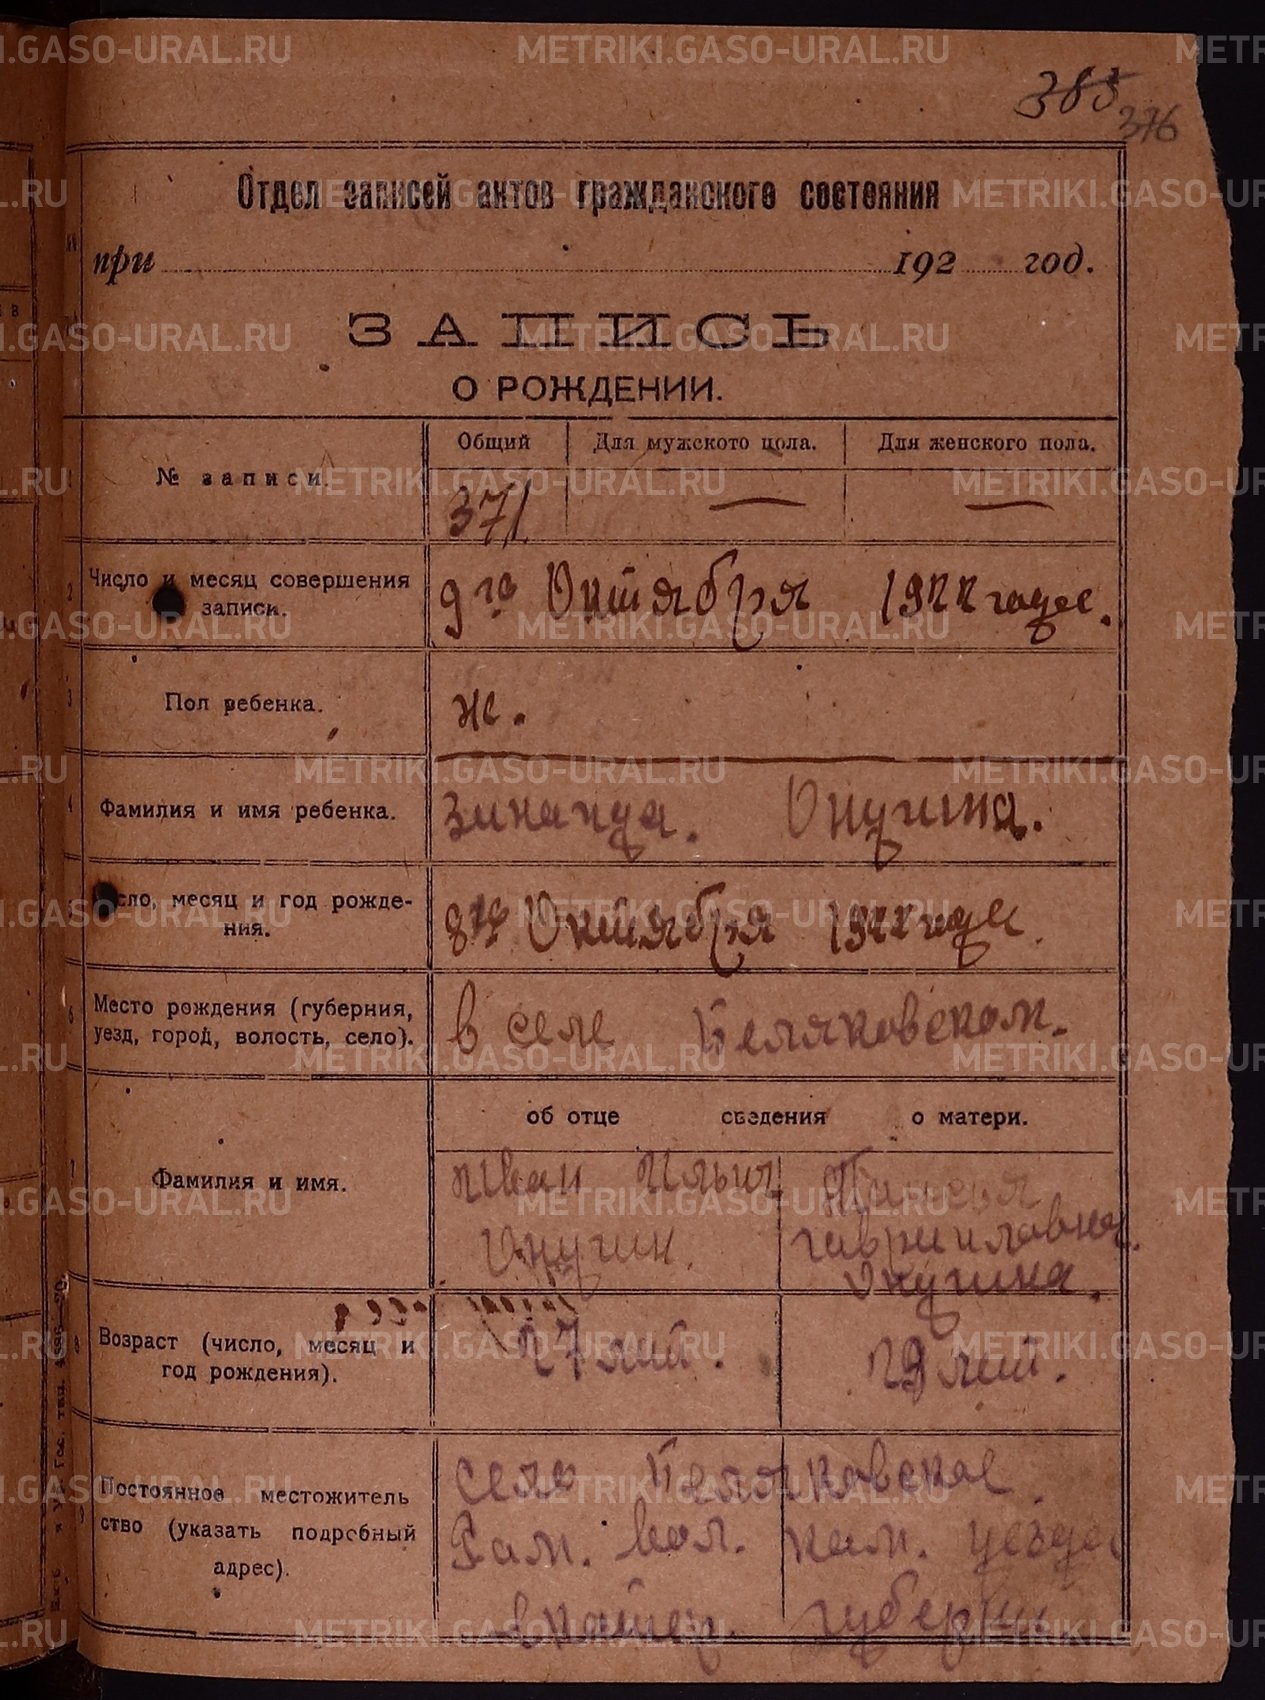 385
376
Отдел записей актов гражданского состояния
при 192 год.
ЗАПИСЬ
О РОЖДЕНИИ.
№ записи.
Общий
Для мужского пола.
Для женского пола.
371
— —
Число и месяц совершения
записи.
9го Октября 1922 года.
Пол ребенка.
ж.
Фамилия и имя ребенка.
Зинаида. Опугина.
сло, месяц и год рожде-
ния.
8го Октября 1922 года.
Место рождения (губерния,
уезд, город, волость, село).
в селе Беляковском.
об отце сведения о матери.
Фамилия и имя.
Иван Ильич
Опугин.
Таисья
гавриловна.
Опугина.
Возраст (число, месяц и
год рождения).
27 лет.
29 лет.
Постоянное местожитель
ство (указать подробный
адрес).
село Беляковское
вол. кам. уезда
екатер. губернии.
METRIKI.GASO-URAL.RU